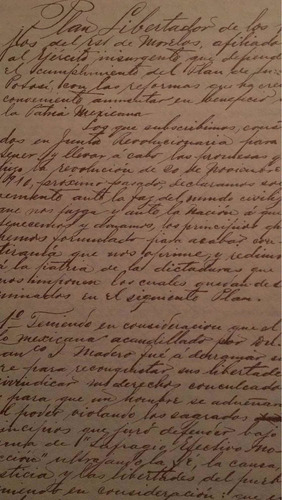 Plan Libertador de los
pos del Est. de Morelos, afiliados
al Ejército insurgente que defiende
el cumplimiento del Plan de San
Potosí, con las reformas que ha creído
conveniente aumentar en beneficio
la Patria Mexicana
Los que subscribimos, constituí
dos en Junta Revolucionaria para
tener y llevar á cabo las promesas q
hizo la revolución de 20 de Noviembre
1910, próximo pasado, declaramos sole
nemente ante la faz del mundo civiliz
que nos juzga y ante la Nación á que
tenecemos y amamos, los principios que
hemos formulado para acabar con
tiranía que nos oprime y redimir
á la patria de las dictaduras que
nos imponen los cuales quedan de
minados en el siguiente Plan.
1º Teniendo en consideración que el
lo mexicano acaudillado por Don
ancº I. Madero fué á derramar su
re para reconquistar sus libertades
vindicar sus derechos conculcados
para que un hombre se adueñara
l poder violando los sagrados
incipios que juró defender bajo
ema de "Sufragio Efectivo No
cción" ultrajando la fé, la causa,
sticia y las libertades del pueblo
niendo en consideración: que e